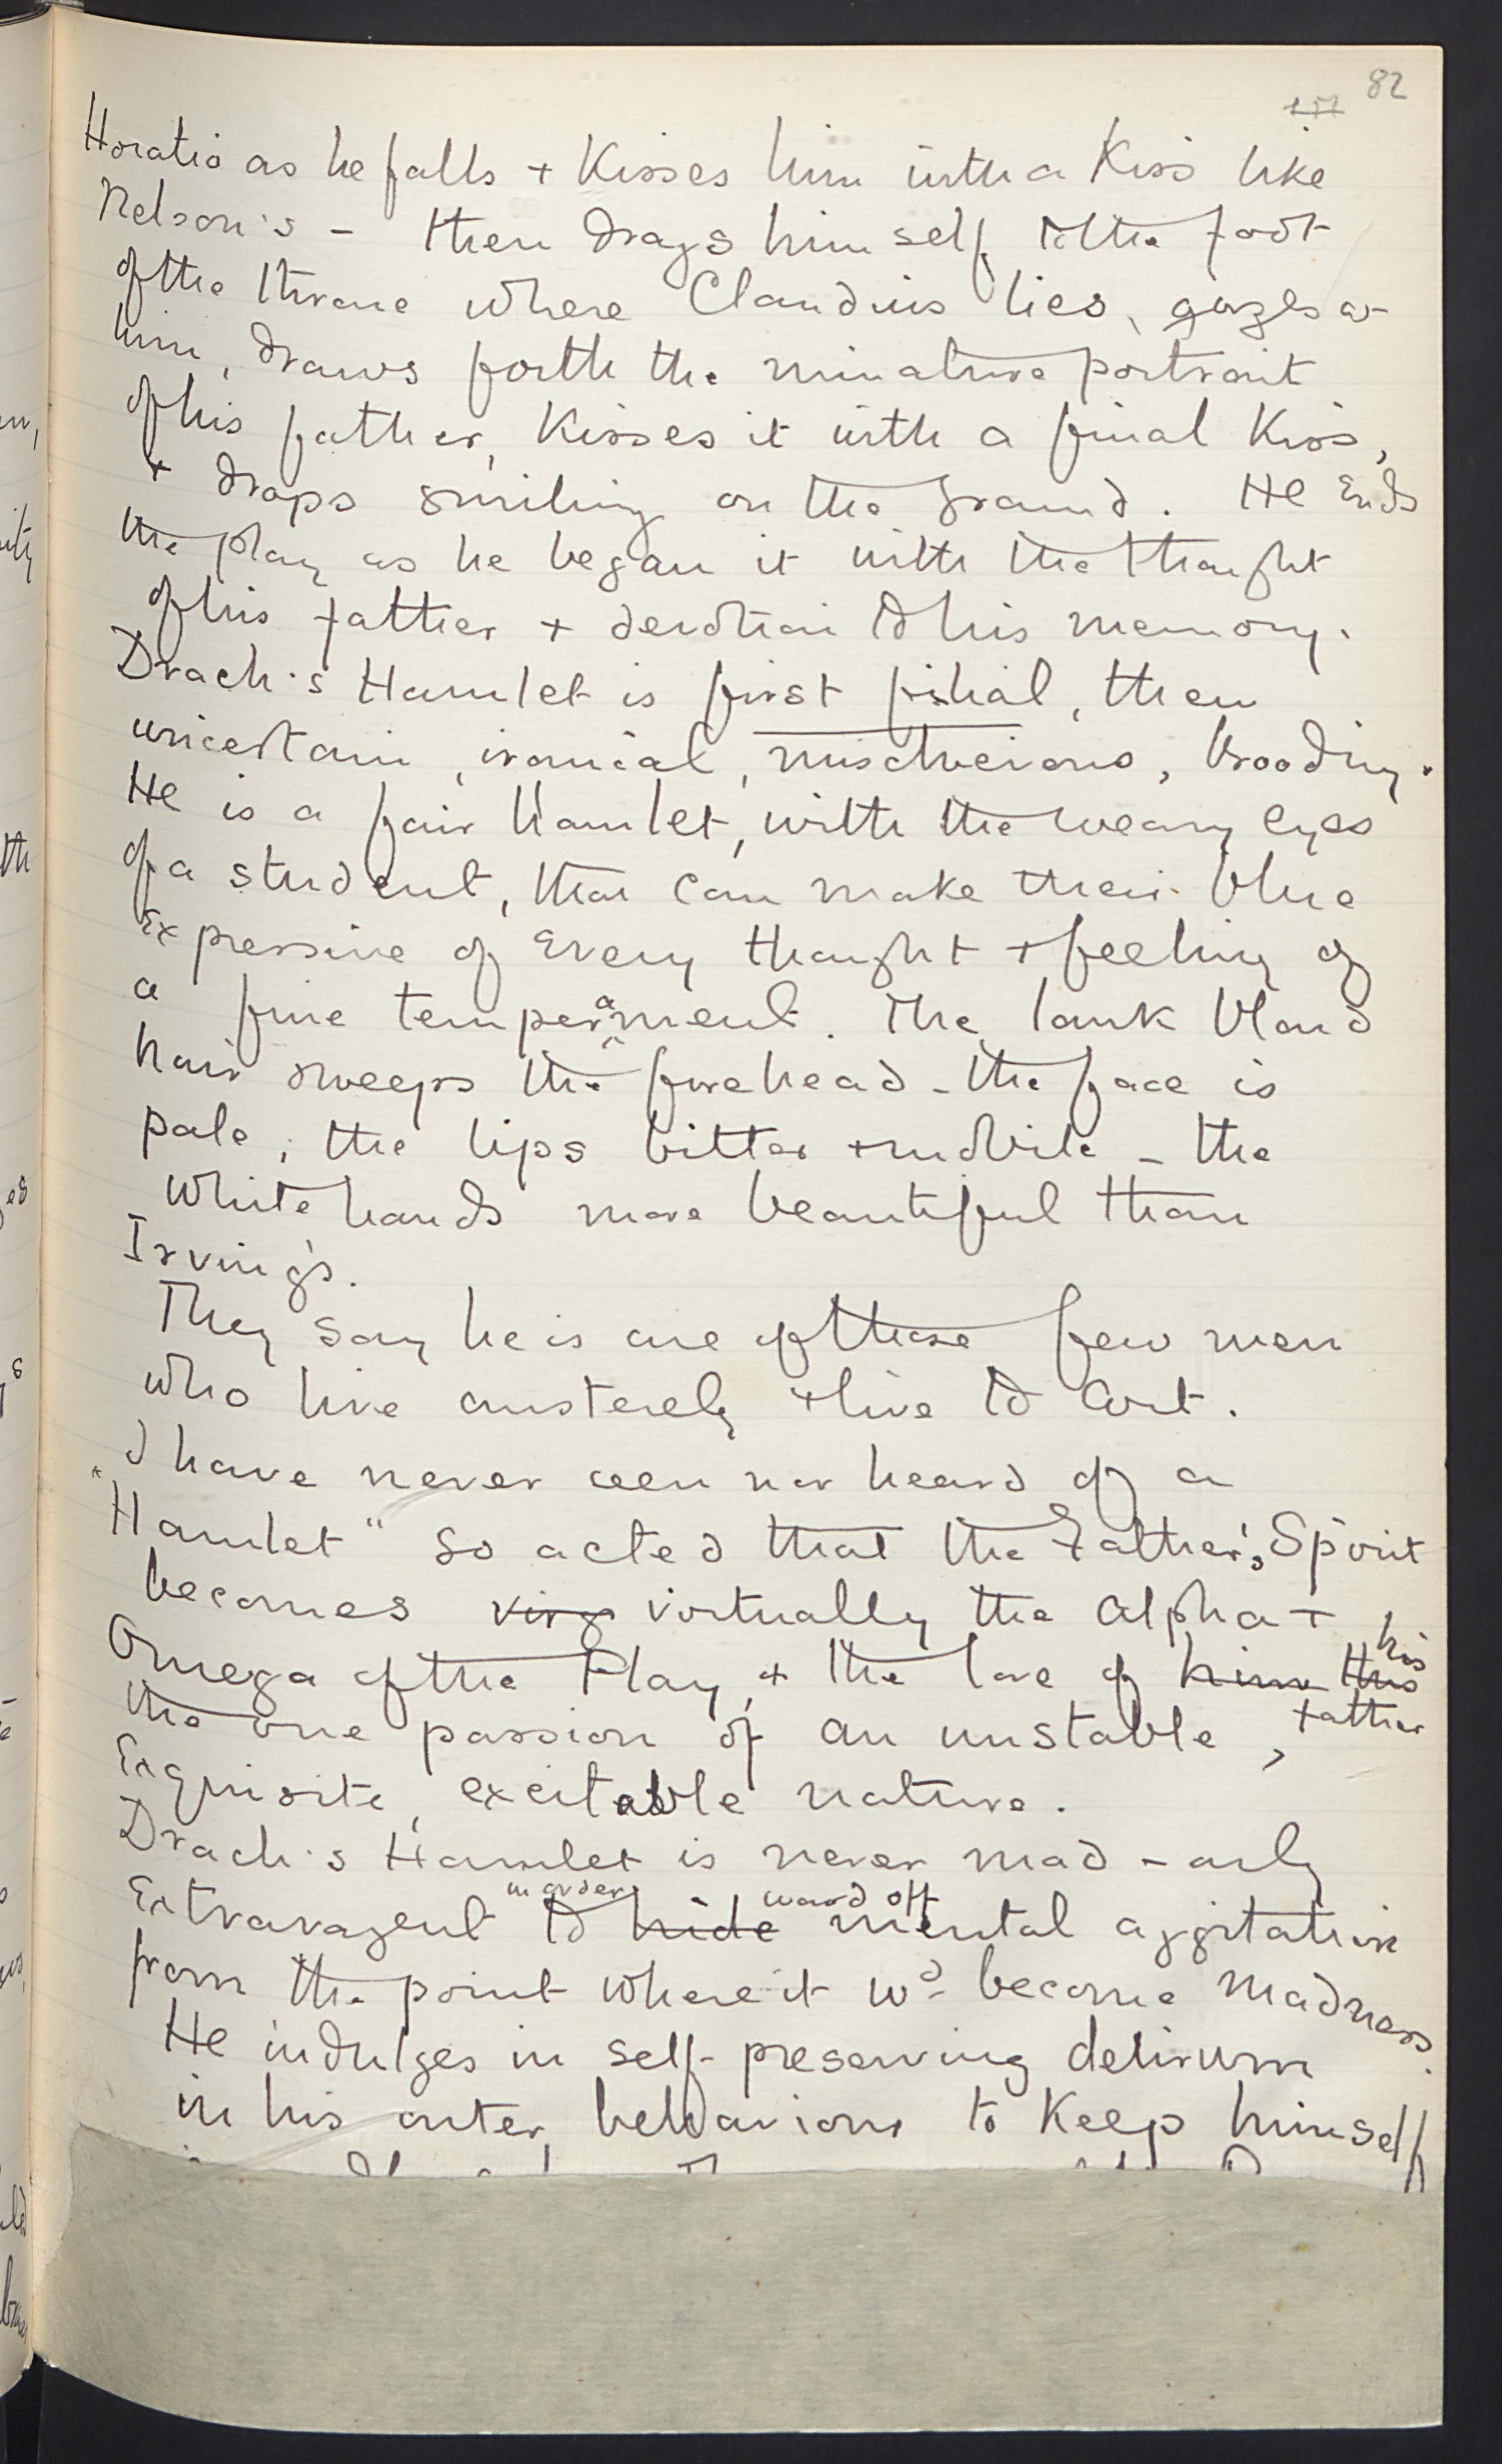 82
Horatio as he falls + Kisses him with a Kiss like
Nelson's - then drags himself to the foot
of the throne where Claudius lies, gazes at
him, draws forth the minature portrait
of his father, Kisses it with a final Kiss,
+ drops smiling on the ground. He Ends
the play as he began it with the thought
of his father + devotion to his memory.
Drach's Hamlet is first filial, then
uncertain, ironical, mischeivous, brooding.
He is a fair Hamlet, with the weary eyes
of a student, that can make their blue
Expressive of Every thought + feeling of
a fine temperament. The lank blond
hair sweeps the forehead - the face is
pale, the lips bitter + mobile - the
white hands more beautiful than
Irving's.
They say he is one of those few men
who live austerely + live to Art.
I have never seen nor heard of a
"Hamlet" so acted that the Father's Spirit
becomes virg virtually the alpha +
Omega of the Play, + the love of him this his father
the one passion of an unstable,
Exquisite, excitable nature.
Drach's Hamlet is never mad - only
Extravagent in order to hide ward off mental aggitation
from the point where it wd become madness.
He indulges in self-preserving delirium
in his outer behaviour to Keep himself